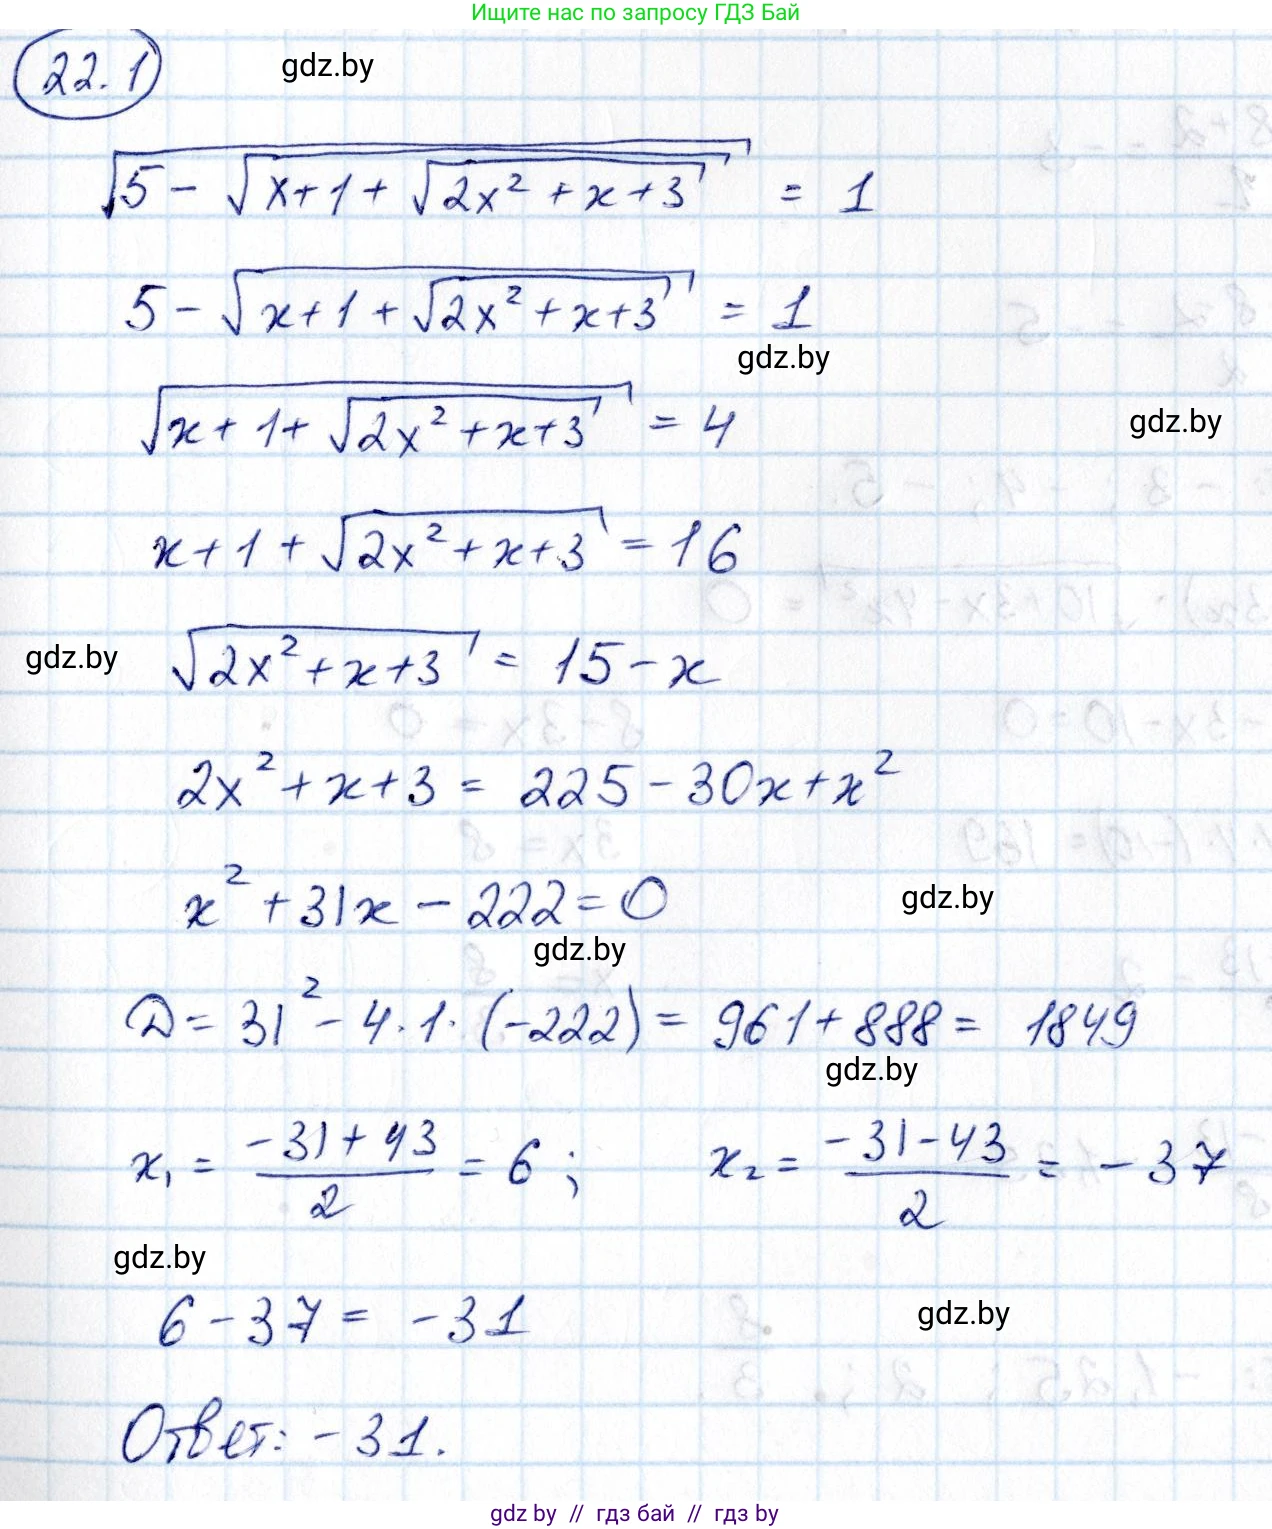 Ищите нас по запросу ГДЗ Бай
22.1
gdz.by
√(5 - √(x+1+√(2x²+x+3))) = 1
5 - √(x+1+√(2x²+x+3)) = 1
gdz.by
√(x+1+√(2x²+x+3)) = 4
gdz.by
x+1+√(2x²+x+3) = 16
gdz.by
√(2x²+x+3) = 15-x
2x²+x+3 = 225-30x+x²
x²+31x-222=0
gdz.by
gdz.by
D = 31²-4·1·(-222) = 961+888 = 1849
gdz.by
x₁ = (-31+43)/2 = 6; x₂ = (-31-43)/2 = -37
gdz.by
6-37 = -31
gdz.by
Ответ: -31.
gdz by // гдз бай // gdz by